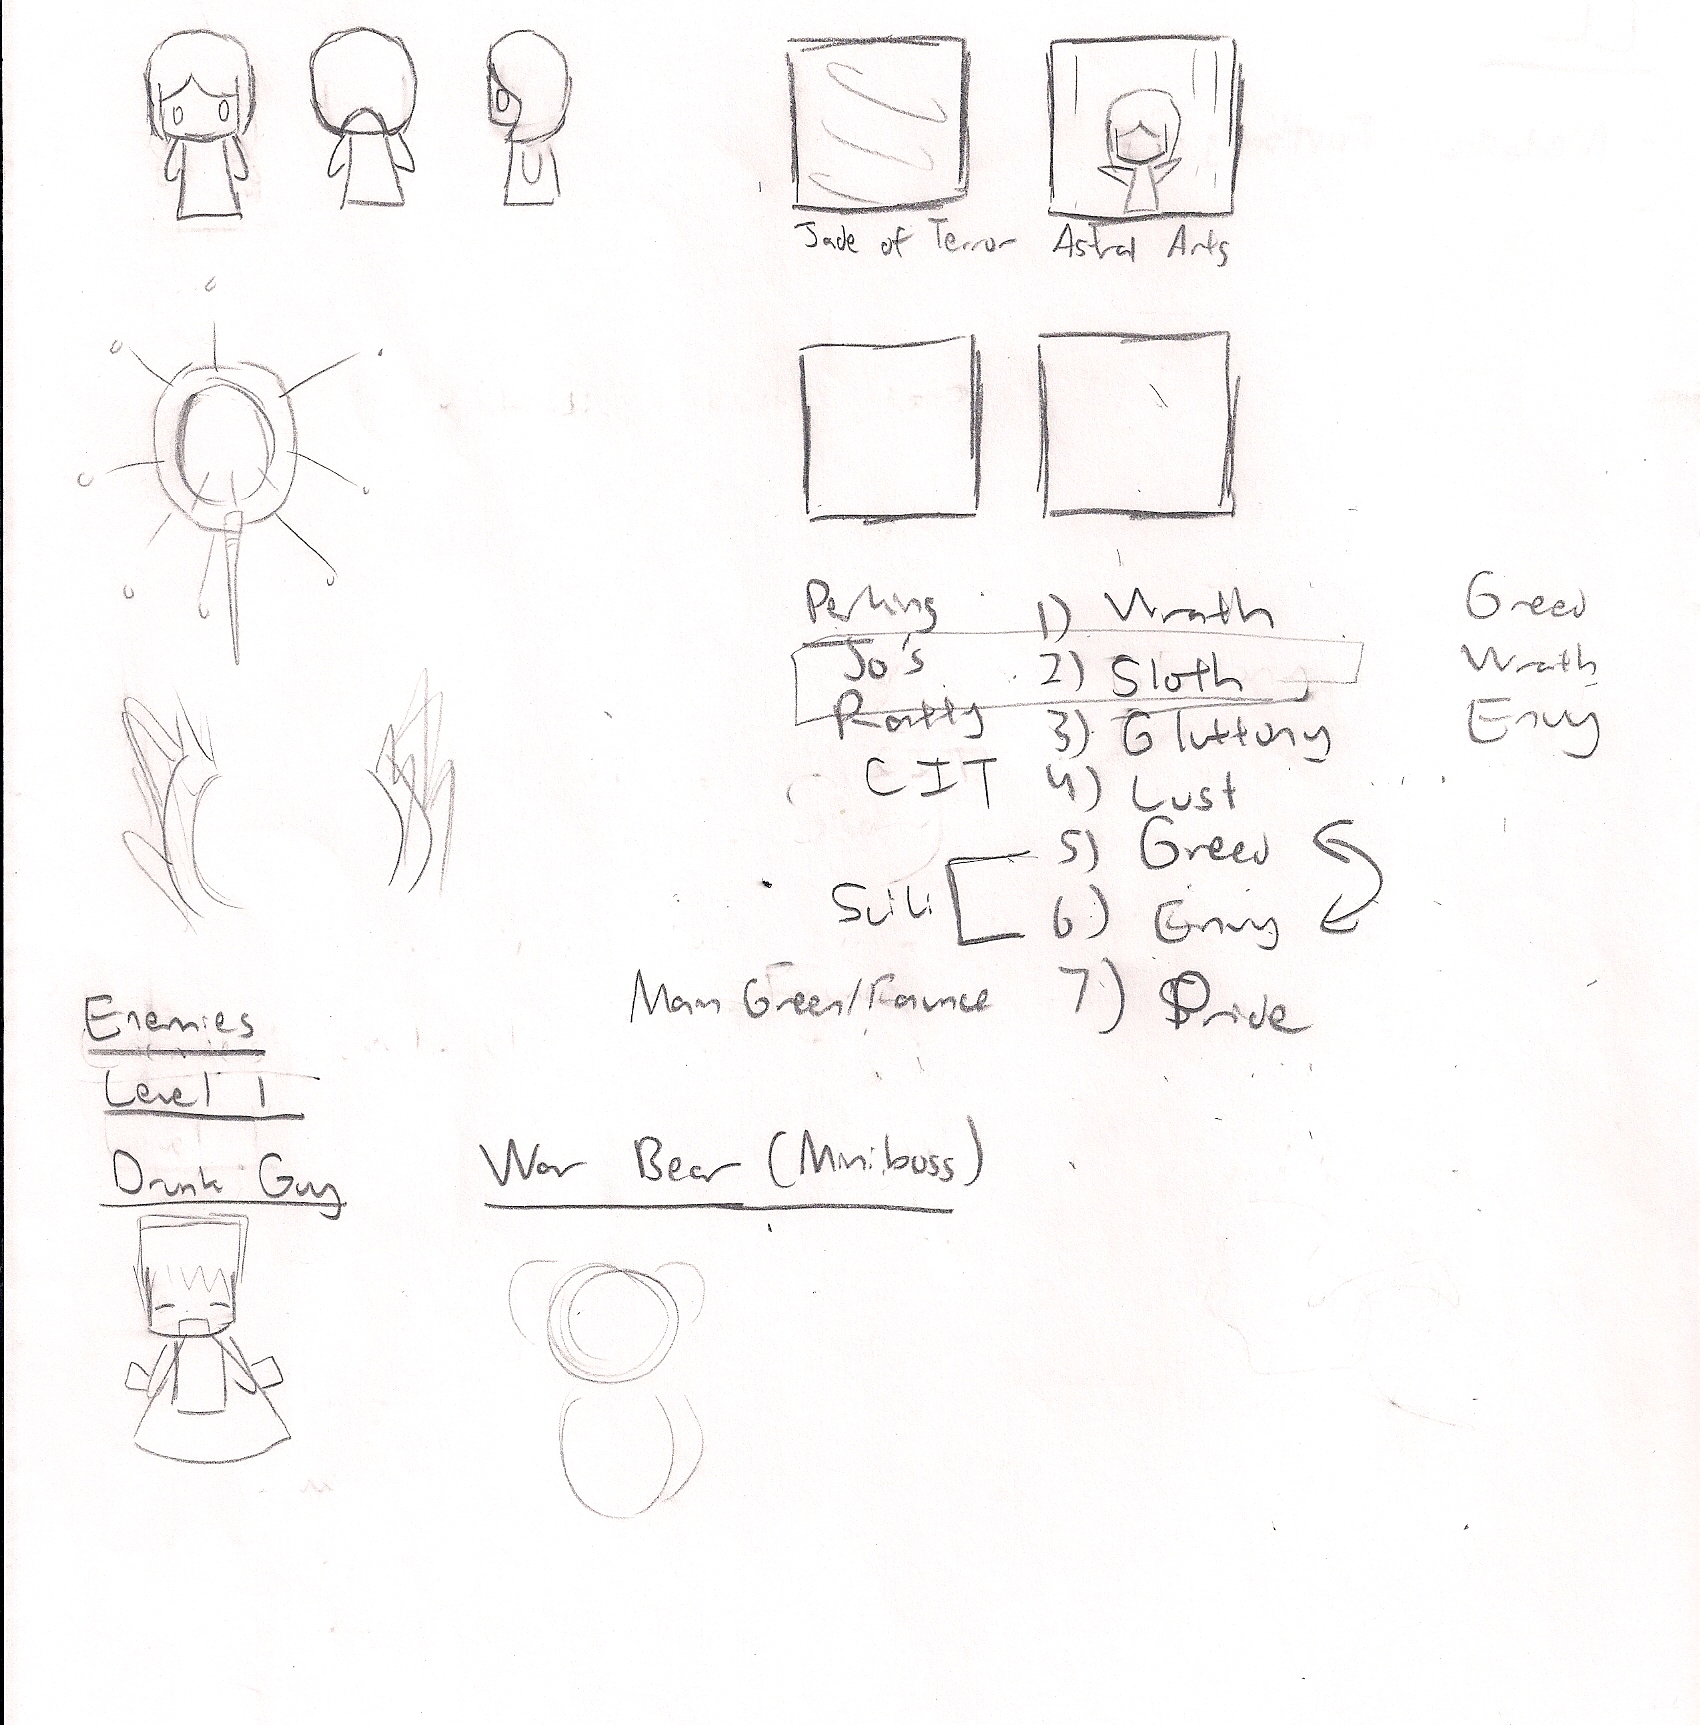 Jade of Terror
Astral Arts
Perkins 1) Wrath
Jo's 2) Sloth
Ratty 3) Gluttony
CIT 4) Lust
5) Greed
6) Envy
Main Green/Faunce 7) Pride
Greed
Wrath
Envy
Enemies
Level 1
Drunk Guy
War Bear (Miniboss)